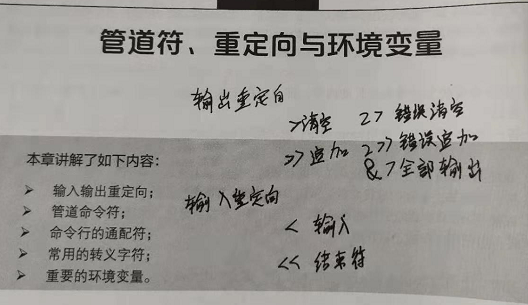 管道符、重定向与环境变量
输出重定向
>清空 2> 错误清空
>> 追加 2>> 错误追加
&> 全部输出
本章讲解了如下内容:
➢ 输入输出重定向;
➢ 管道命令符;
➢ 命令行的通配符;
➢ 常用的转义字符;
➢ 重要的环境变量。
输入重定向
< 输入
<< 结束符